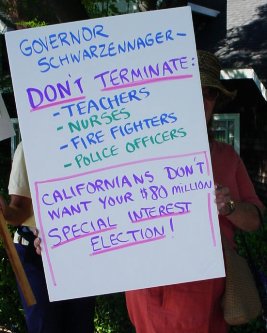 GOVERNOR
SCHWARZENNAGER-
DON'T TERMINATE:
-TEACHERS
-NURSES
-FIRE FIGHTERS
-POLICE OFFICERS
CALIFORNIANS DON'T
WANT YOUR $80 MILLION
SPECIAL INTEREST
ELECTION!